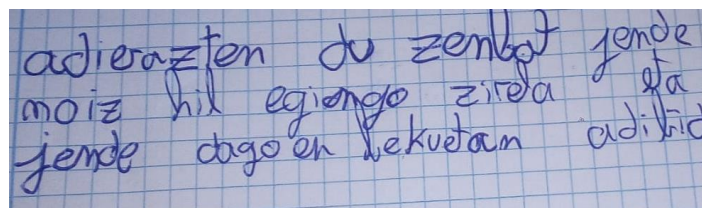 adierazten du zenbat jende
noiz hil egiongo zirela eta
jende dagoen lekuetan